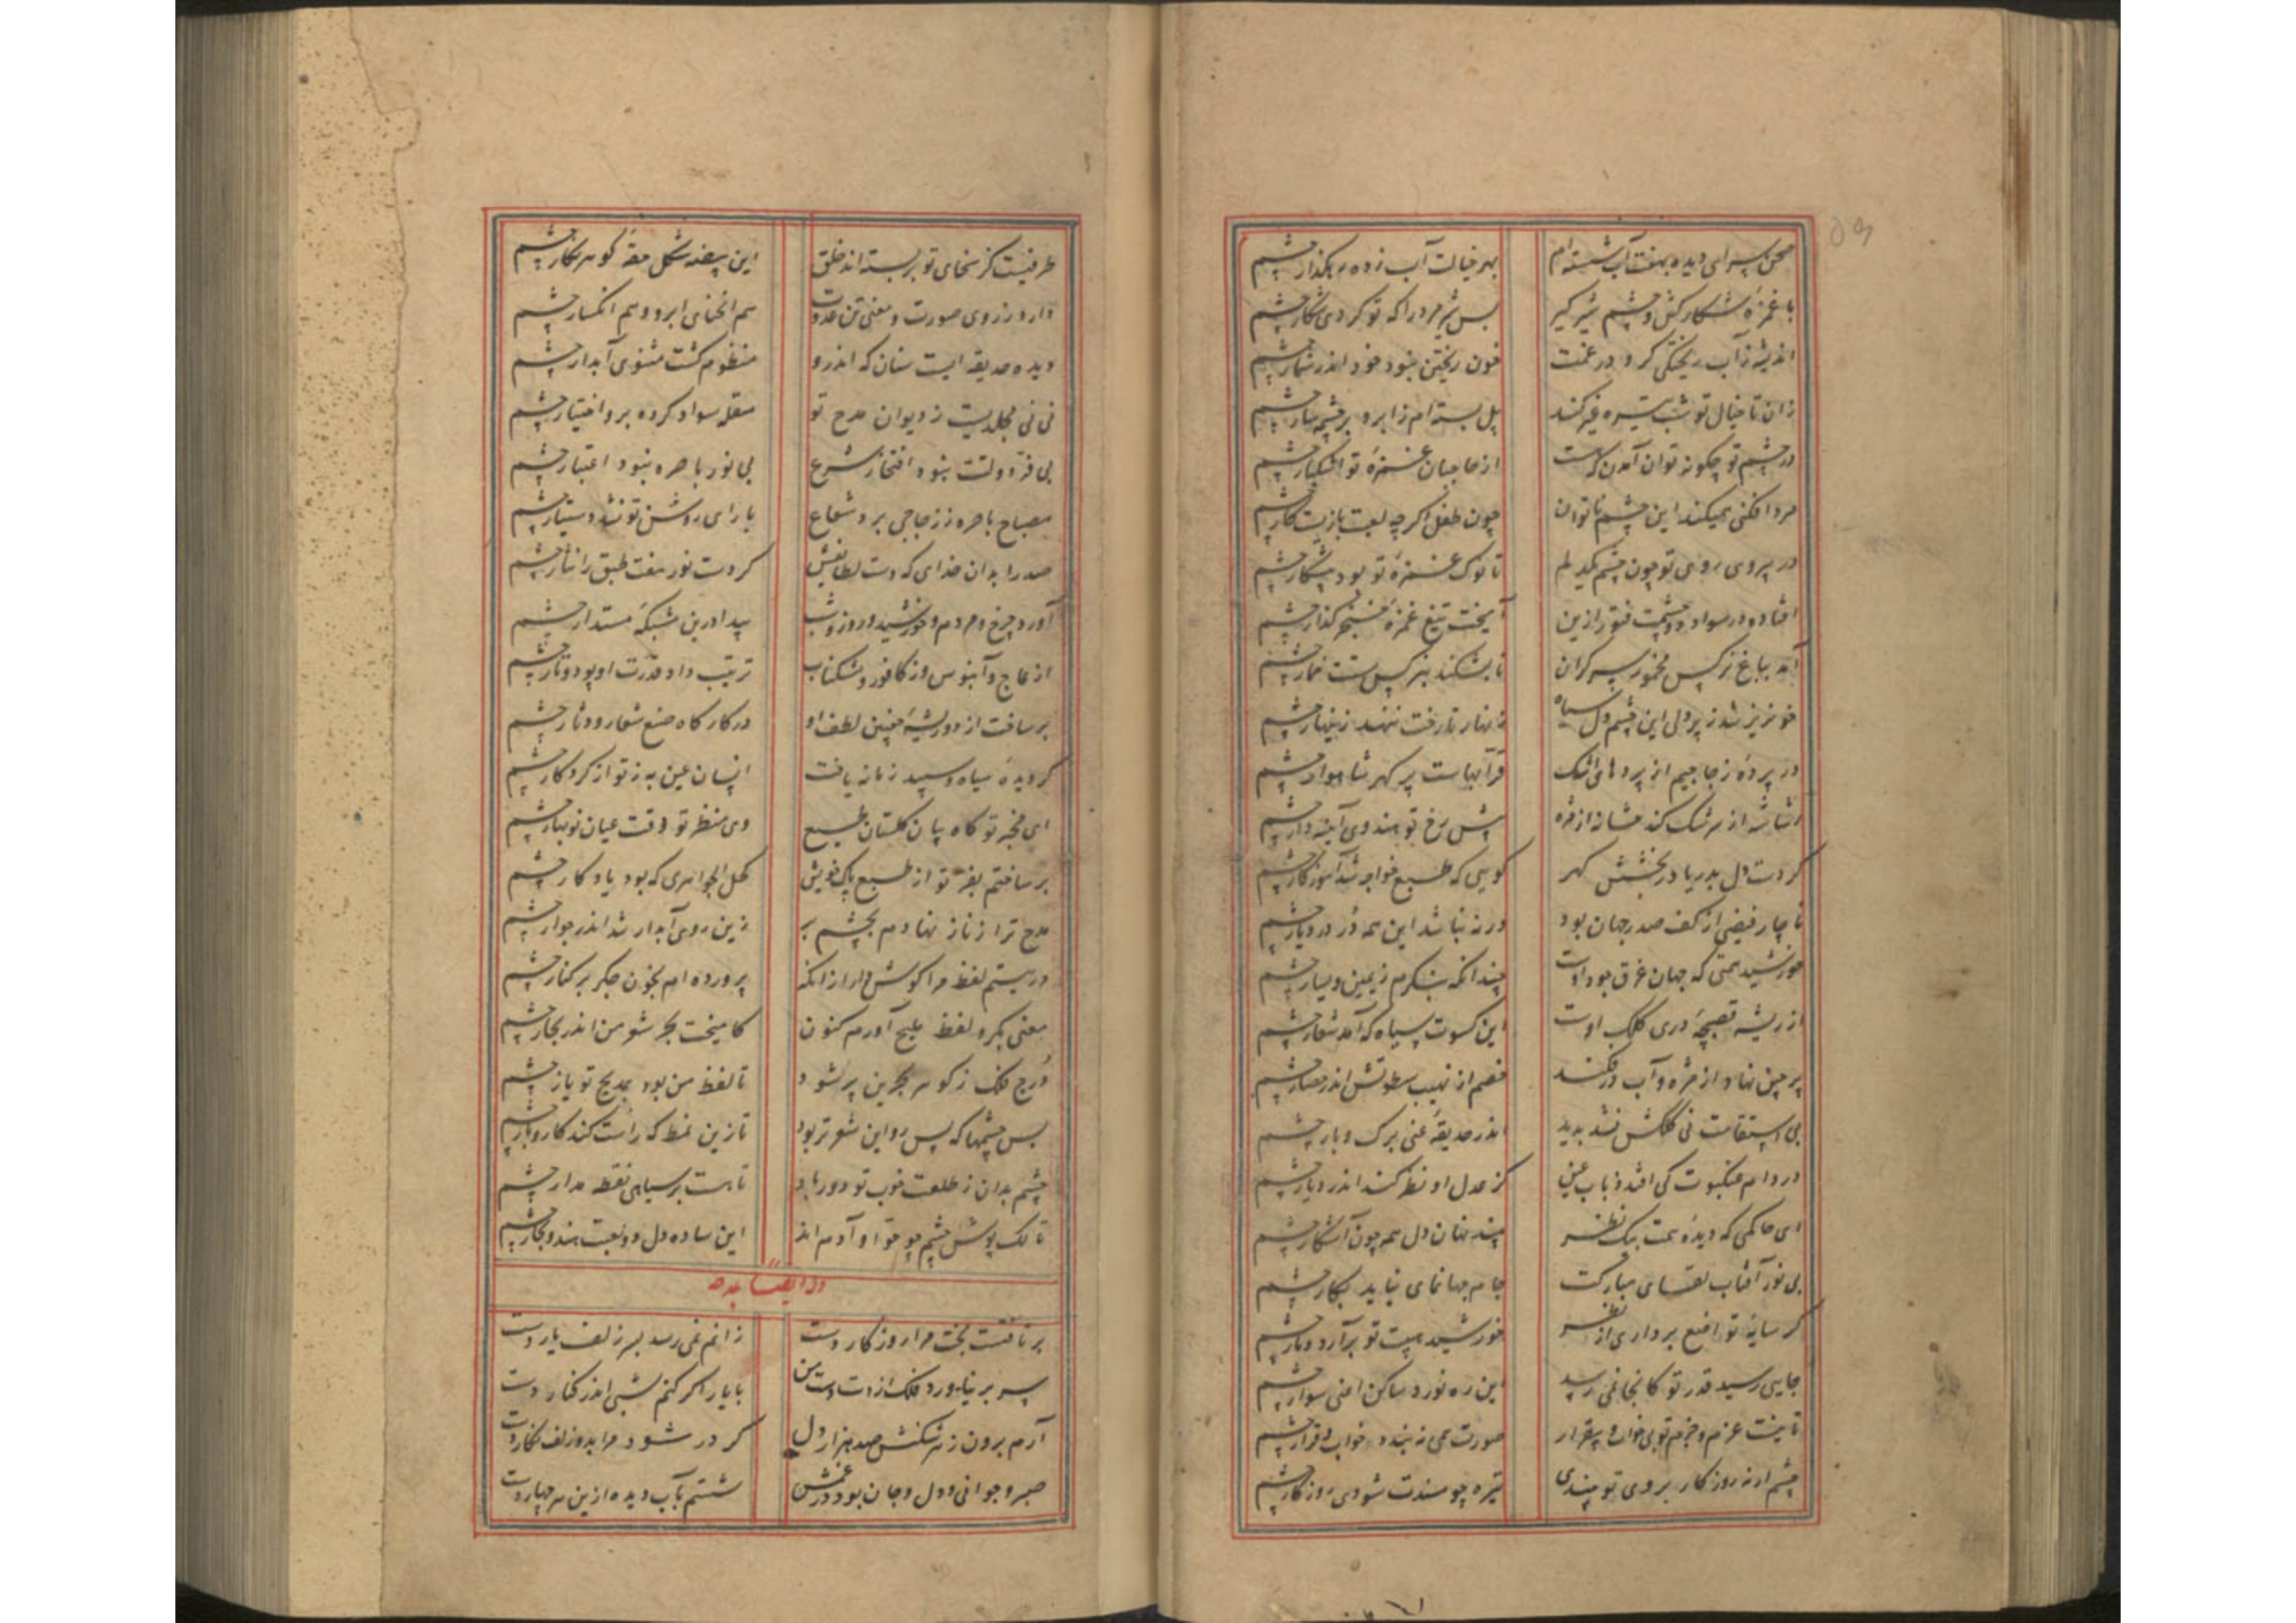 صحن سرای دیده بهفت آب شسته‌ام
بهر خیالت آب زده رهگذار چشم
با غمزه شکار کش و چشم شیر گیر
بس شیر مرد را که تو کردی شکار چشم
اندیشه ز آب ریختگی کرد در غمت
خون ریختن نبود خود اندر شمار چشم
زان تا خیال تو شب تیره عبر کند
پل بسته‌ام ز ابرو بر چشمه سار چشم
در چشم تو چگونه توان آمدن که هست
از حاجبان غمزه تو اشکبار چشم
مردافکنی همیکند این چشم ناتوان
چون طفل اگر چه لعبت بازیست کار چشم
در پیروی روی تو چون چشم دلم
تا نوک غمزه تو بود پیشکار چشم
افتاده در سواد دو چشمت فتور ازین
آمیخت تیغ غمزه خنجر گذار چشم
آمد بباغ نرگس مخمور سرگران
تا بشکند بنرگس مستت خمار چشم
خونریز شد ز پر دلی این چشم دل سیاه
زنهار تا رخت ننهد زینهار چشم
در پرده زجاجیم از پردهای اشک
قرابهاست پر گهر شاهوار چشم
شانه از مژه
پیش رخ تو هندوی آینه‌دار چشم
کر دست دل بدریا در بخشش گهر
گویی که طبع خواجه شد آموزگار چشم
ناچار فیضی از کف صدر جهان بود
ورنه نباشد این همه در در دیار چشم
خورشید همتی که جهان غرق جود اوست
چندانکه بنگرم ز یمین و یسار چشم
از ریشه دری کلک اوست
این کسوت سیاه که آمد شعار چشم
پرچین نهاد از مژه و آب در فکند
خصم از نهیب سطوتش اندر حصار چشم
بی استقامت نی کلکش نشد پدید
اندر حدیقه عنبی برگ و بار چشم
در دام عنکبوت کی افتد ذباب عین
کز عدل او نظر کند اندر دیار چشم
ای حاکمی که دیده همت بیک نظر
بیند نهان دل همه چون آشکار چشم
بی نور آفتاب لقای مبارکت
جام جهانمای نیاید بکار چشم
گر سایه تواضع برداری از نظر
خورشید هیبت تو برآرد دمار چشم
جایی رسید قدر تو کانجا نمی رسد
این ره نورد ساکن اعنی سوار چشم
تا نیست عزم و حزم تو بی خواب و بیقرار
صورت نمی نبندد خواب و قرار چشم
چشم ار نه روزگار بروی تو بیندی
تیره چو مسندت شودی روزگار چشم
طرفیست کز سخای تو بر بسته‌اند خلق
این بیضه شکل حقه گوهر نگار چشم
دارد ز روی صورت و معنی تن عدوت
هم انحنای ابرو و هم انکسار چشم
دیده حدیقه ایست سنان که اندرو
منظوم گشت مثنوی آبدار چشم
نی نی مجلدیست ز دیوان مدح تو
مقله سواد کرده برو اختیار چشم
بی فر دولتت نبود افتخار شرع
بی نور باصره نبود اعتبار چشم
مصباح باصره ز زجاجی برد شعاع
با رای روشن تو نشد دستیار چشم
صدرا بدان خدای که دست لطایفش
کردست نور هفت طبق را نثار چشم
آورد چرخ و مردم و خورشید و روز و شب
پیدا درین شبکه مستدار چشم
از عاج و آبنوس و ز کافور و مشک ناب
ترتیب داد قدرت او پود و تار چشم
بر ساخت از دو ریشه چنین لطف او
در کارگاه صنع شعار و دثار چشم
گر دیده سیاه و سپید زمانه یافت
انسان عین به ز تو از کردگار چشم
ای مخبر تو گاه بیان گلستان طبع
وی منظر تو وقت عیان نوبهار چشم
بر ساختم بفر تو از طبع پاک خویش
کحل الجواهری که بود یادگار چشم
مدح ترا ز ناز نهادم بچشم بر
زین روی آبدار شد اندر جوار چشم
در یتیم لفظ مرا گوش دار از آنکه
پرورده‌ام بخون جگر بر کنار چشم
معنی بکر و لفظ ملیح آورم کنون
کامیخت بحر شعر من اندر بحار چشم
درج فلک ز گوهر بحرین پر شود
تا لفظ من بود بمدیح تو یار چشم
بس چشمها که پس رو این شعر تر بود
تا زین نمط که راست کند کار و بار چشم
چشم بدان ز طلعت خوب تو دور باد
تا هست بر سیاهی نقطه مدار چشم
تا لک پوش چشم چو حوا و آدم اند
این ساده دل دو لعبت هندو بچار چشم
وله ایضا یمدحه
بر تافتست بخت مرا روزگار دست
زانم نمی رسد بسر زلف یار دست
سر بر نیاورد فلک از دست دست من
با یار اگر کنم شبی اندر کنار دست
آرم برون ز هر شکنش صد هزار دل
گر در شود مرا بدو زلف نگار دست
صبر و جوانی و دل و جان بود در غمش
شستم بآب دیده ازین هر چهار دست